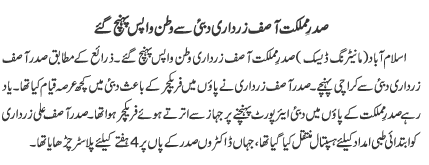 صدر مملکت آصف زرداری دبئی سے وطن واپس پہنچ گئے
اسلام آباد (مانیٹرنگ ڈیسک) صدر مملکت آصف زرداری وطن واپس پہنچ گئے۔ ذرائع کے مطابق صدر آصف
زرداری دبئی سے کراچی پہنچے۔ صدر آصف زرداری نے پاؤں میں فریکچر کے باعث دبئی میں کچھ عرصہ قیام کیا تھا۔ یاد
رہے صدر مملکت کے پاؤں میں دبئی ایئرپورٹ پہنچنے پر جہاز سے اترتے ہوئے فریکچر ہوا تھا۔ صدر آصف علی زرداری
کو ابتدائی طبی امداد کیلئے ہسپتال منتقل کیا گیا تھا، جہاں ڈاکٹروں صدر کے پاں پر 4 ہفتے کیلئے پلاسٹر چڑھایا تھا۔